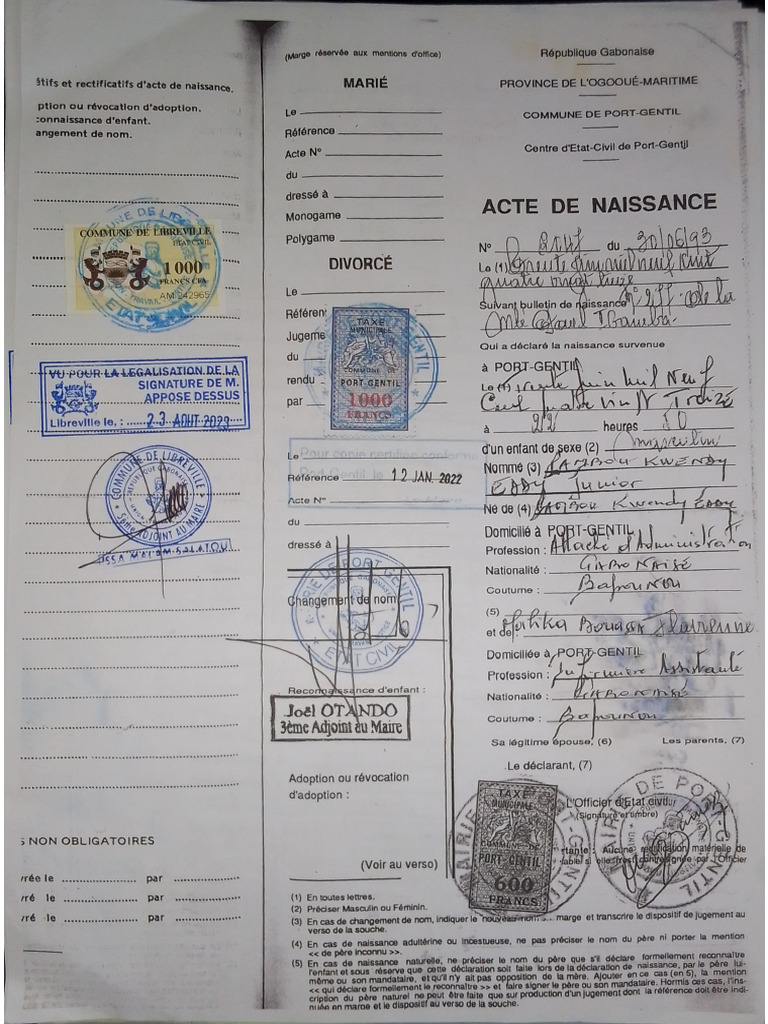 átifs et rectificatifs d'acte de naissance.
ption ou révocation d'adoption.
connaissance d'enfant.
angement de nom.
COMMUNE DE LIBREVILLE
ETAT CIVIL
1 000
FRANCS CFA
AM 242965
VU POUR LA LEGALISATION DE LA
SIGNATURE DE M.
APPOSEE DESSUS
Libreville le, : 23 AOUT 2023
COMMUNE DE LIBREVILLE
5ème ADJOINT AU MAIRE
S NON OBLIGATOIRES
vrée le par
vré le par
vré le par
(Marge réservée aux mentions d'office)
MARIÉ
Le
Référence
Acte N°
du
dressé à
Monogame
Polygame
DIVORCÉ
Le
Référen
Jugeme
du
rendu
par
TAXE
MUNICIPALE
COMMUNE DE
PORT-GENTIL
1000
FRANCS
Pour copie certifiée conforme
Port-Gentil le 12 JAN. 2022
Le
Référence
Acte N°
du
dressé à
MAIRIE DE PORT GENTIL
ETAT CIVIL
Changement de nom
Reconnaissance d'enfant :
Joël OTANDO
3ème Adjoint au Maire
Adoption ou révocation
d'adoption :
(Voir au verso)
République Gabonaise
PROVINCE DE L'OGOOUÉ-MARITIME
COMMUNE DE PORT-GENTIL
Centre d'Etat-Civil de Port-Gentil
ACTE DE NAISSANCE
N° du 30/06/93
Le (1)
quatre vingt treize
Suivant bulletin de naissance N° 277 de la
Qui a déclaré la naissance survenue
à PORT-GENTIL
Le (1) trente juin mil Neuf
Cent quatre vingt Treize
à 22 heures 50
d'un enfant de sexe (2) Masculin
Nommé (3) KWENDY
EDDY Junior
Né de (4) Kwendy EDDY
Domicilié à PORT-GENTIL
Profession : Attaché d'Administration
Nationalité : GABONAISE
Coutume : Bapounou
(5)
et de
Domiciliée à PORT-GENTIL
Profession : Infirmière Assistante
Nationalité : GABONAISE
Coutume : Bapounou
Sa légitime épouse, (6) Les parents, (7)
Le déclarant, (7)
L'Officier d'Etat civil
(Signature et timbre)
TAXE
MUNICIPALE
COMMUNE DE
PORT-GENTIL
600
FRANCS
MAIRIE DE PORT-G
rtante : Aucune rectification matérielle de
(1) En toutes lettres.
(2) Préciser Masculin ou Féminin.
(3) En cas de changement de nom, indiquer le nouveau nom marge et transcrire le dispositif de jugement au
verso de la souche.
(4) En cas de naissance adultérine ou incestueuse, ne pas préciser le nom du père ni porter la mention
<< de père inconnu >>.
(5) En cas de naissance naturelle, ne préciser le nom du père que s'il déclare formellement reconnaître
l'enfant et sous réserve que cette déclaration soit faite lors de la déclaration de naissance, par le père lui-
même ou son mandataire, et qu'il n'y ait pas opposition de la mère. Ajouter en ce cas (en 5), la mention
<< qui déclare formellement le reconnaître >> et faire signer le père ou son mandataire. Hormis ces cas, l'ins-
cription du père naturel ne peut être faite que sur production d'un jugement dont la référence doit être indi-
quée en marge et le dispositif au verso de la souche.